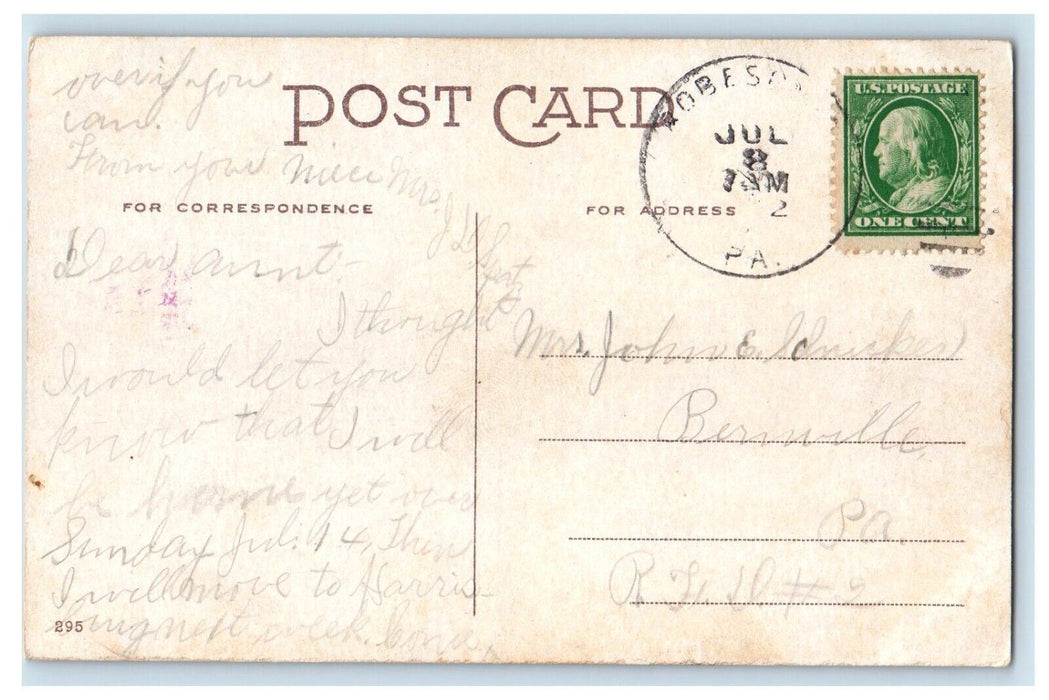 POST CARD
FOR CORRESPONDENCE
FOR ADDRESS
JUL
8
7 AM
2
PA.
U.S. POSTAGE
ONE CENT
Dear aunt-
I thought
I would let you
know that I will
be home yet over
Sunday Jul. 14, Then
I will move to Harris-
next week. Come
over if you
can.
From your niece Mrs.
Mrs. John E.
Bernville,
Pa.
R F D #2
295